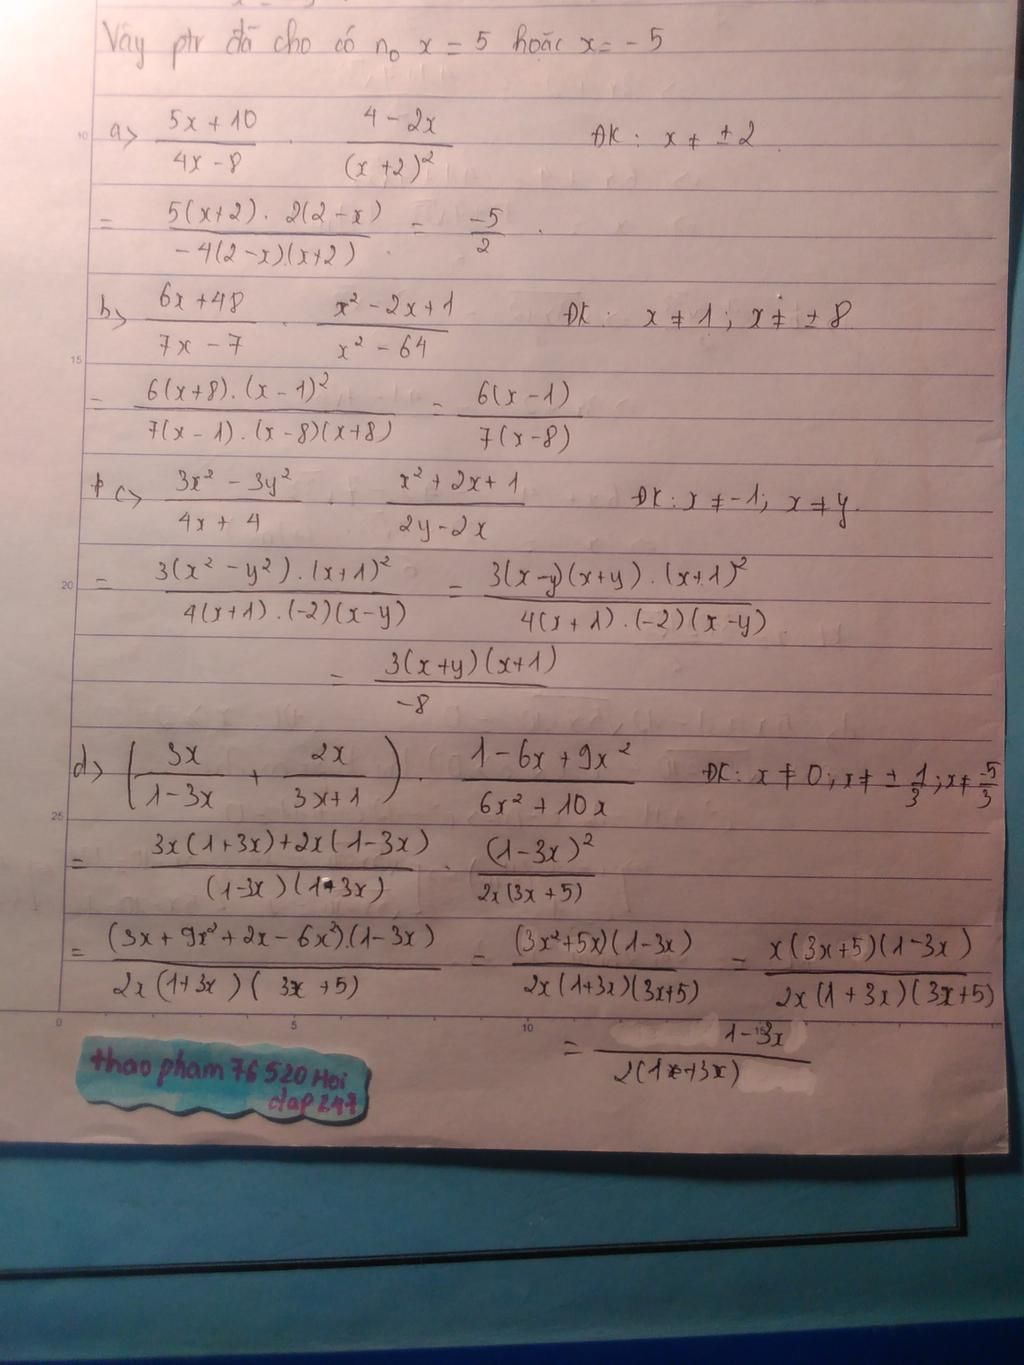 Vậy ptr đã cho có n₀ x = 5 hoặc x = -5
a> (5x + 10)/(4x - 8) . (4 - 2x)/(x + 2)² ĐK: x ≠ ±2
= (5(x+2) . 2(2-x))/(-4(2-x)(x+2)) = -5/2 .
b> (6x + 48)/(7x - 7) . (x² - 2x + 1)/(x² - 64) ĐK: x ≠ 1; x ≠ ±8
= (6(x+8).(x-1)²)/(7(x-1).(x-8)(x+8)) = (6(x-1))/(7(x-8))
c> (3x² - 3y²)/(4x + 4) . (x² + 2x + 1)/(2y - 2x) ĐK: x ≠ -1; x ≠ y.
= (3(x² - y²).(x+1)²)/(4(x+1).(-2)(x-y)) = (3(x-y)(x+y).(x+1)²)/(4(x+1).(-2)(x-y))
= (3(x+y)(x+1))/(-8)
d> (3x/(1-3x) + 2x/(3x+1)) . (1 - 6x + 9x²)/(6x² + 10x) ĐK: x ≠ 0; x ≠ ±1/3; x ≠ -5/3
= (3x(1+3x)+2x(1-3x))/((1-3x)(1+3x)) . (1-3x)²/(2x(3x+5))
= ((3x + 9x² + 2x - 6x²).(1-3x))/(2x(1+3x)(3x+5)) = ((3x²+5x)(1-3x))/(2x(1+3x)(3x+5)) = (x(3x+5)(1-3x))/(2x(1+3x)(3x+5))
= (1-3x)/(2(1+3x))
thao pham 76520 Hoi
dap 247